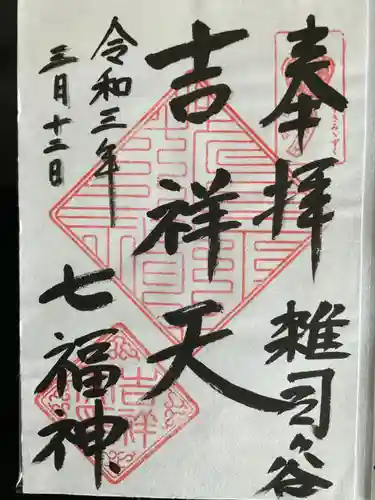 奉拝
雑司ヶ谷
吉祥天
七福神
令和三年
三月十二日